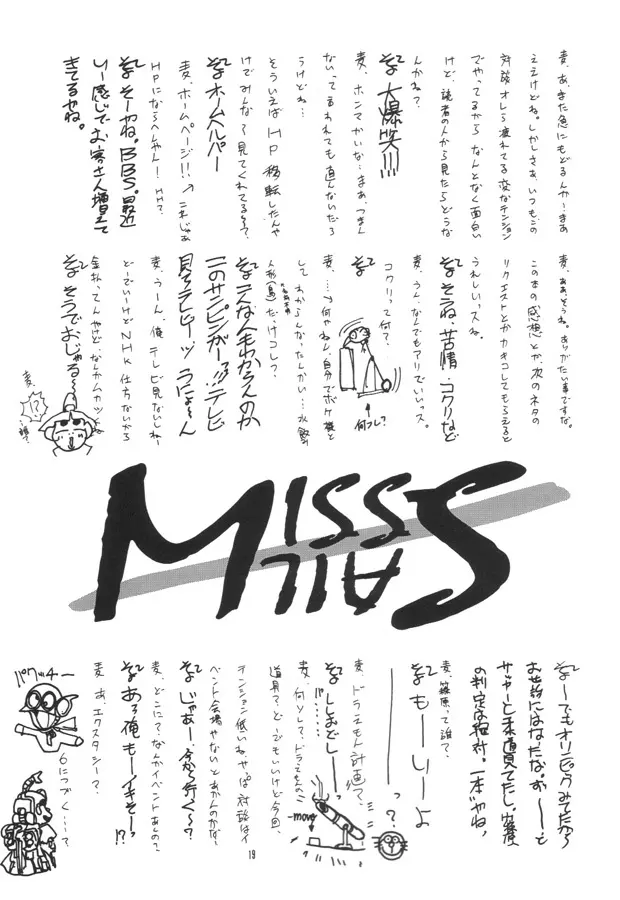 麦、あ、また急にもどるんかー。まあ
ええけどね。しかしさあ、いつもこの
対談オレら疲れてる変なテンション
でやってるから なんとなく面白い
けど、読者の人から見たらどうな
んかね？
そ 大爆笑!!!
麦、ホンマかいな…まあ、つまん
ないって言われても直んないだろ
うけどね…
そういえばHP移転したんや
けどみんな見てくれてる〜？
そ ホームヘルパー
麦、ホームページ!! ↗ これじゃあ
HPにならへんやん! HH?
そ そーやね。BBS。最近
いー感じでお客さん増えて
きてるやね。
麦、ああ、そうね。ありがたい事ですな。
この本の感想とか、次のネタの
リクエストとかカキコしてもらえると
うれしいっスね。
そ そうね、苦情・コクリなど
麦、うん、なんでもアリでいいっス。
コクリって何？
そ
↑
何コレ？
麦、…何やねん、自分でボケ機と
してわからんなったんかい…水飲み
人形(鳥)だけコレ？
そ こんな人もわからんのか
このサンピンがー!!! テレビ
見てテレビーッ うにょ〜ん
麦、うーん、俺テレビ見ないしねー
どーでいいけどNHK仕方ないから
金払ってんやけど、なんかムカッとよね
そ そうでおじゃる〜
麦、
!?
MISS
SAIL
そ 〜でもオリンピックみてたから
お世話にはなたな。お〜〜と
サッカーと柔道見てたし。篠原
の判定は絶対。一本やね。
麦、篠原って誰？
そ もーしーよ
っ？
麦、ドラえもん計画？
そ しおどしー
…
麦、何ソレ？、ドラえもんの
道具？、どーでもいいけど今回、
テンション低いねやっぱ対談はイ
ベント会場やないとあかんのかな？
そ じゃあー、今から行く〜？
麦、どこに？、なんかイベントあんの？
そ ある俺もーイキそーっ!?
麦 あ、エクスタシー？、
6につづく…？
パクッチー
-move
19